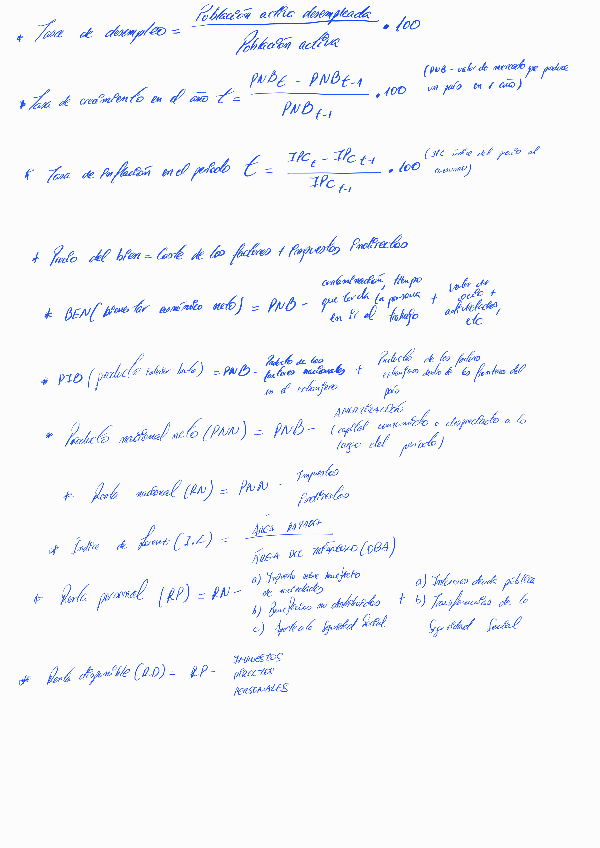 * Tasa de desempleo = Población activa desempleada / Población activa • 100
* Tasa de crecimiento en el año t = PNBt - PNBt-1 / PNBt-1 • 100 (PNB - valor de mercado que produce un país en 1 año)
* Tasa de inflación en el periodo t = IPCt - IPCt-1 / IPCt-1 • 100 (IPC índice del precio al consumo)
* Precio del bien = Coste de los factores + Impuestos Indirectos
* BEN (bienestar económico neto) = PNB - contaminación, tiempo que tarda la persona en ir al trabajo + valor de ocio + actividades, etc.
* PIB (producto interior bruto) = PNB - Producto de los factores nacionales en el extranjero + Producto de los factores extranjeros dentro de las fronteras del país
* Producto nacional neto (PNN) = PNB - AMORTIZACIÓN (capital consumido o desgastado a lo largo del periodo)
* Renta nacional (RN) = PNN - Impuestos Indirectos
* Índice de Lorenz (I.L) = ÁREA RAYADA / ÁREA DEL TRIÁNGULO (OBA)
* Renta personal (RP) = RN -
a) Impuesto sobre beneficio de sociedades
b) Beneficios no distribuidos
c) Aporte a la Seguridad Social
+
a) Intereses deuda pública
b) Transferencias de la Seguridad Social
* Renta disponible (R.D) = RP - IMPUESTOS DIRECTOS PERSONALES